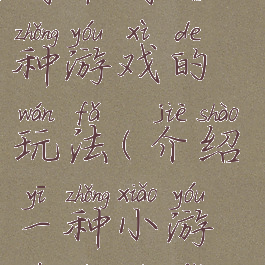 zhǒng yóu xì de
种游戏的
wán fǎ jiè shào
玩法(介绍
yī zhǒng xiǎo yóu
一种小游